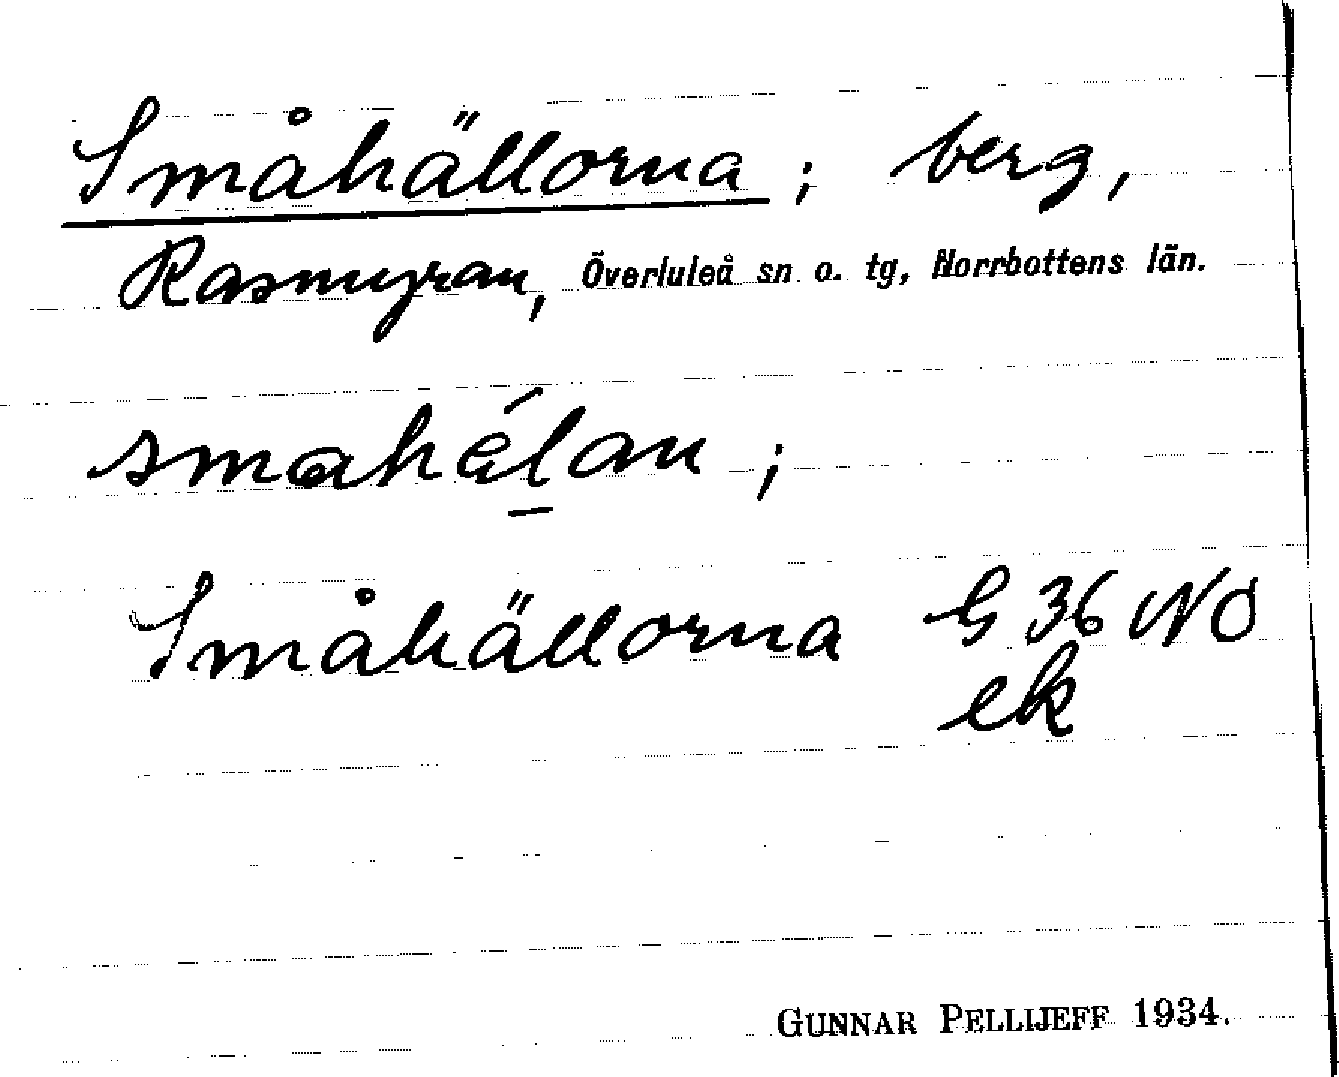 Småhällorna; berg,
Rasmyran, Överluleå sn o. tg, Norrbottens län.
smahä́l̠an;
Småhällorna G 36 NO
ek
GUNNAR PELLIJEFF 1934.